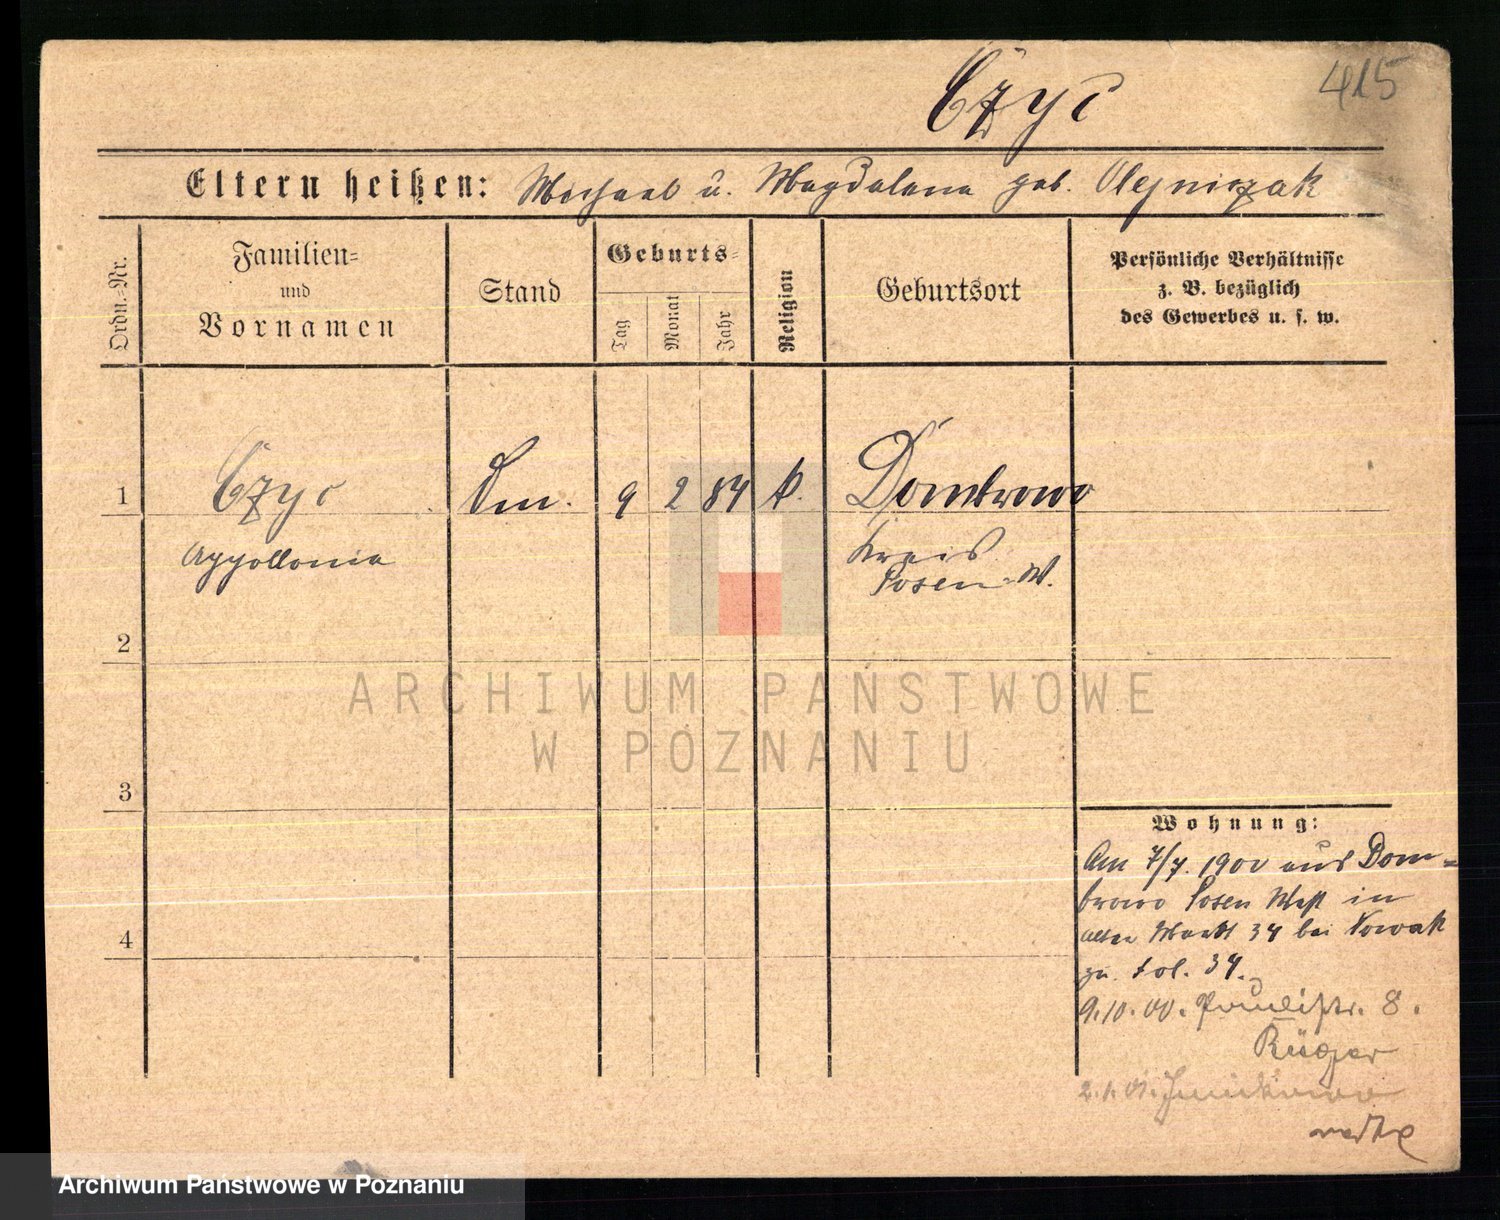 415
Czyc
Eltern heißen: Michael u. Magdalena geb. Olejniczak
Ordn.-Nr.
Familien-
und
Vornamen
Stand
Geburts-
Tag
Monat
Jahr
Religion
Geburtsort
Persönliche Verhältnisse
z. B. bezüglich
des Gewerbes u. s. w.
1
Czyc
9 2 84 k.
Dombrowo
Appollonia
Kreis
Posen-W.
2
ARCHIWUM PAŃSTWOWE
W POZNANIU
3
4
Wohnung:
Am 7/7. 1900 aus Dom-
browo Posen West in
alter Markt 34 bei Nowak
zu fol. 34.
9.10.00. Paulistr. 8.
2.1.01. Junikowo
Archiwum Państwowe w Poznaniu